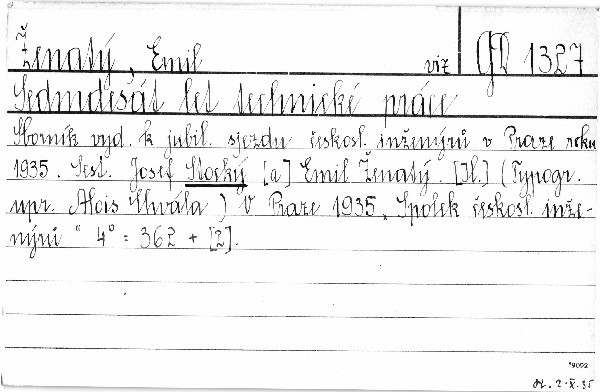 Ženatý, Emil viz GD 1327
Sedmdesát let technické práce
Sborník vyd. k jubil. sjezdu českosl. inženýrů v Praze roku
1935. Sest. Josef Stocký [a] Emil Ženatý. [Il.] (Typogr.
upr. Alois Chvála) V Praze 1935, Spolek českosl. inže-
nýrů " 4° = 362 + [2].
9092
2.X.35